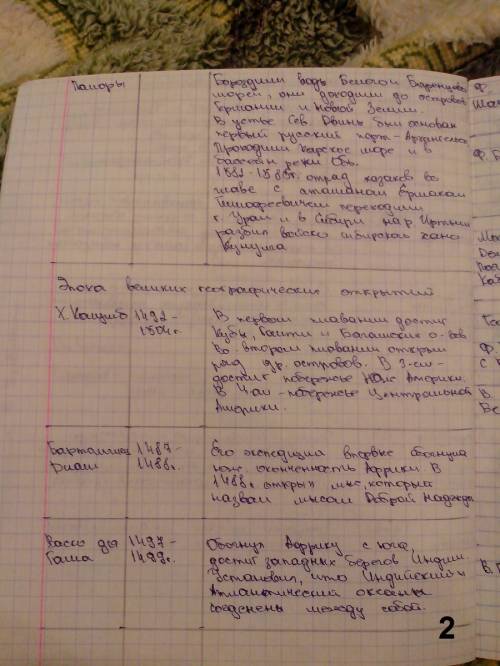 Поморы
Бороздили воды Белого и Баренцева
морей, они доходили до островов
Германии и Новой Земли.
В устье Сев. Двины был основан
первый русский порт - Архангельск
Проходили Карское море и в
бассейн реки Обь.
отряд казаков во
главе с атаманом Ермаком
Тимофеевичем переходили
г. Урал и в Сибири на р Иртыш
разбил войско сибирского хана
Кучума
Эпоха великих географических открытий
Х. Колумб 1492-
1504г.
В первом плавании достиг
Кубы, Гаити и Багамских о-вов
Во втором плавании открыл
ряд др. островов. В 3-ем-
достиг побережье Юж Америки.
В 4-ом - побережье Центральной
Америки.
Бартоломеу
Диаш
1487-
1488г.
Его экспедиция впервые обогнула
юж. оконечность Африки. В
1488г открыл мыс, который
назвал мысом Доброй Надежды
Васко да
Гама
1497-
1499г.
Обогнул Африку с юга,
достиг западных берегов Индии.
Установил, что Индийский и
Атлантический океаны
соеденены между собой.
2